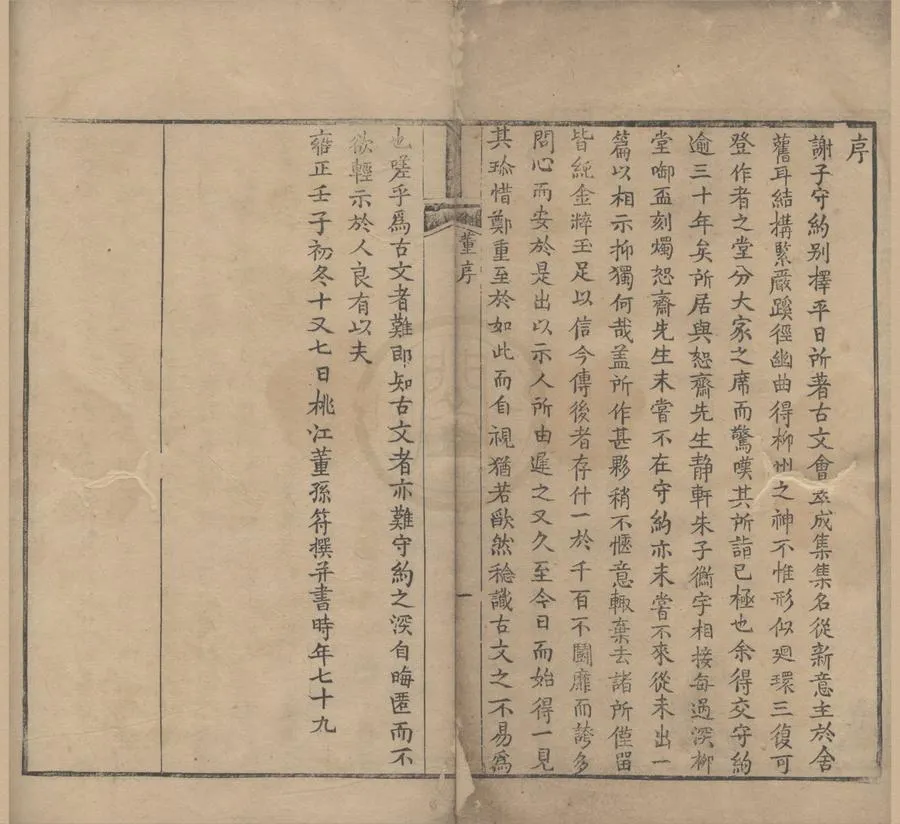 序
謝子守約別擇平日所著古文會萃成集集名從新意主於舍
舊耳結構緊嚴蹊徑幽曲得柳州之神不惟形似廻環三復可
登作者之堂分大家之席而驚嘆其所詣已極也余得交守約
逾三十年矣所居與恕齋先生靜軒朱子衡宇相接每過深柳
堂啣盃刻燭恕齋先生未嘗不在守約亦未嘗不來從未出一
篇以相示抑獨何哉盖所作甚夥稍不愜意輙棄去諸所僅留
皆純金粹玉足以信今傳後者存什一於千百不鬬靡而誇多
問心而安於是出以示人所由遲之又久至今日而始得一見
其珎惜鄭重至於如此而自視猶若歉然稔識古文之不易爲
董序
一
也嗟乎爲古文者難即知古文者亦難守約之深自晦匿而不
欲輕示於人良有以夫
雍正壬子初冬十又七日桃江董孫符撰并書時年七十九